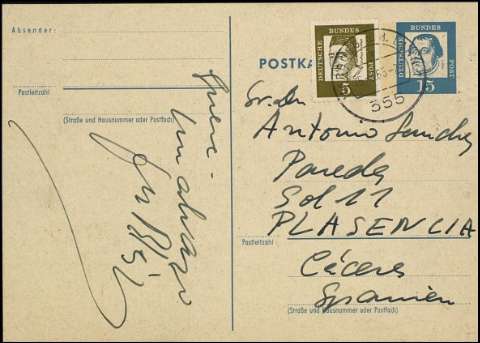 Absender:
Postleitzahl
(Straße und Hausnummer oder Postfach)
Un abrazo
POSTKA
DEUTSCHE
BUNDES
POST
5
DEUTSCHE
BUNDES
POST
15
355
Antonio Sanchez
Paredes
Sol 11
PLASENCIA
Postleitzahl
Cáceres
Spanien
(Straße und Hausnummer oder Postfach)